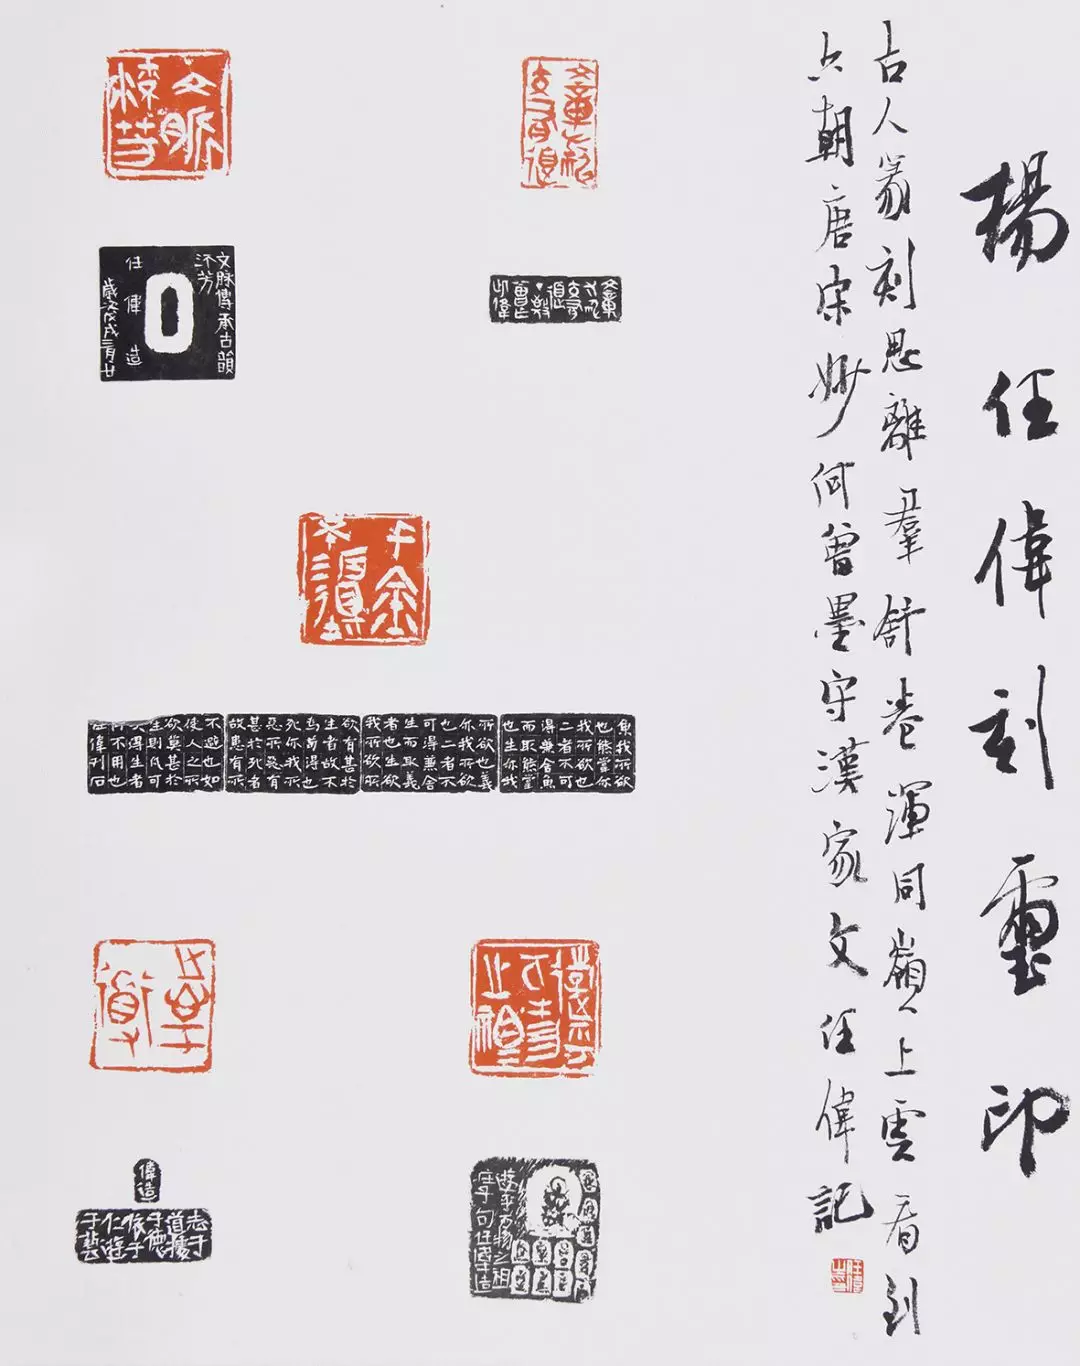 楊任偉刻璽印
古人篆刻思離羣舒卷渾同嶺上雲看到
六朝唐宋妙何曾墨守漢家文任偉記
文脉傳承古韻
芳
任偉造
歲次戊戌三月廿
千金不
魚我所欲
也熊掌亦
我所欲也
二者不可
得兼舍魚
而取熊掌
也生亦我
所欲也義
亦我所欲
也二者不
可得兼舍
生而取義
者也生欲
我所欲所
欲有甚於
生者故不
為苟得也
死亦我所
惡所惡有
甚於死者
故患有所
不避也如
使人之所
欲莫甚於
生則凡可
得生者
何不用也
任偉刊石
偉造
志于
道據
于德
依于
仁遊
于藝
遊乎万物之祖
莊子句任偉造